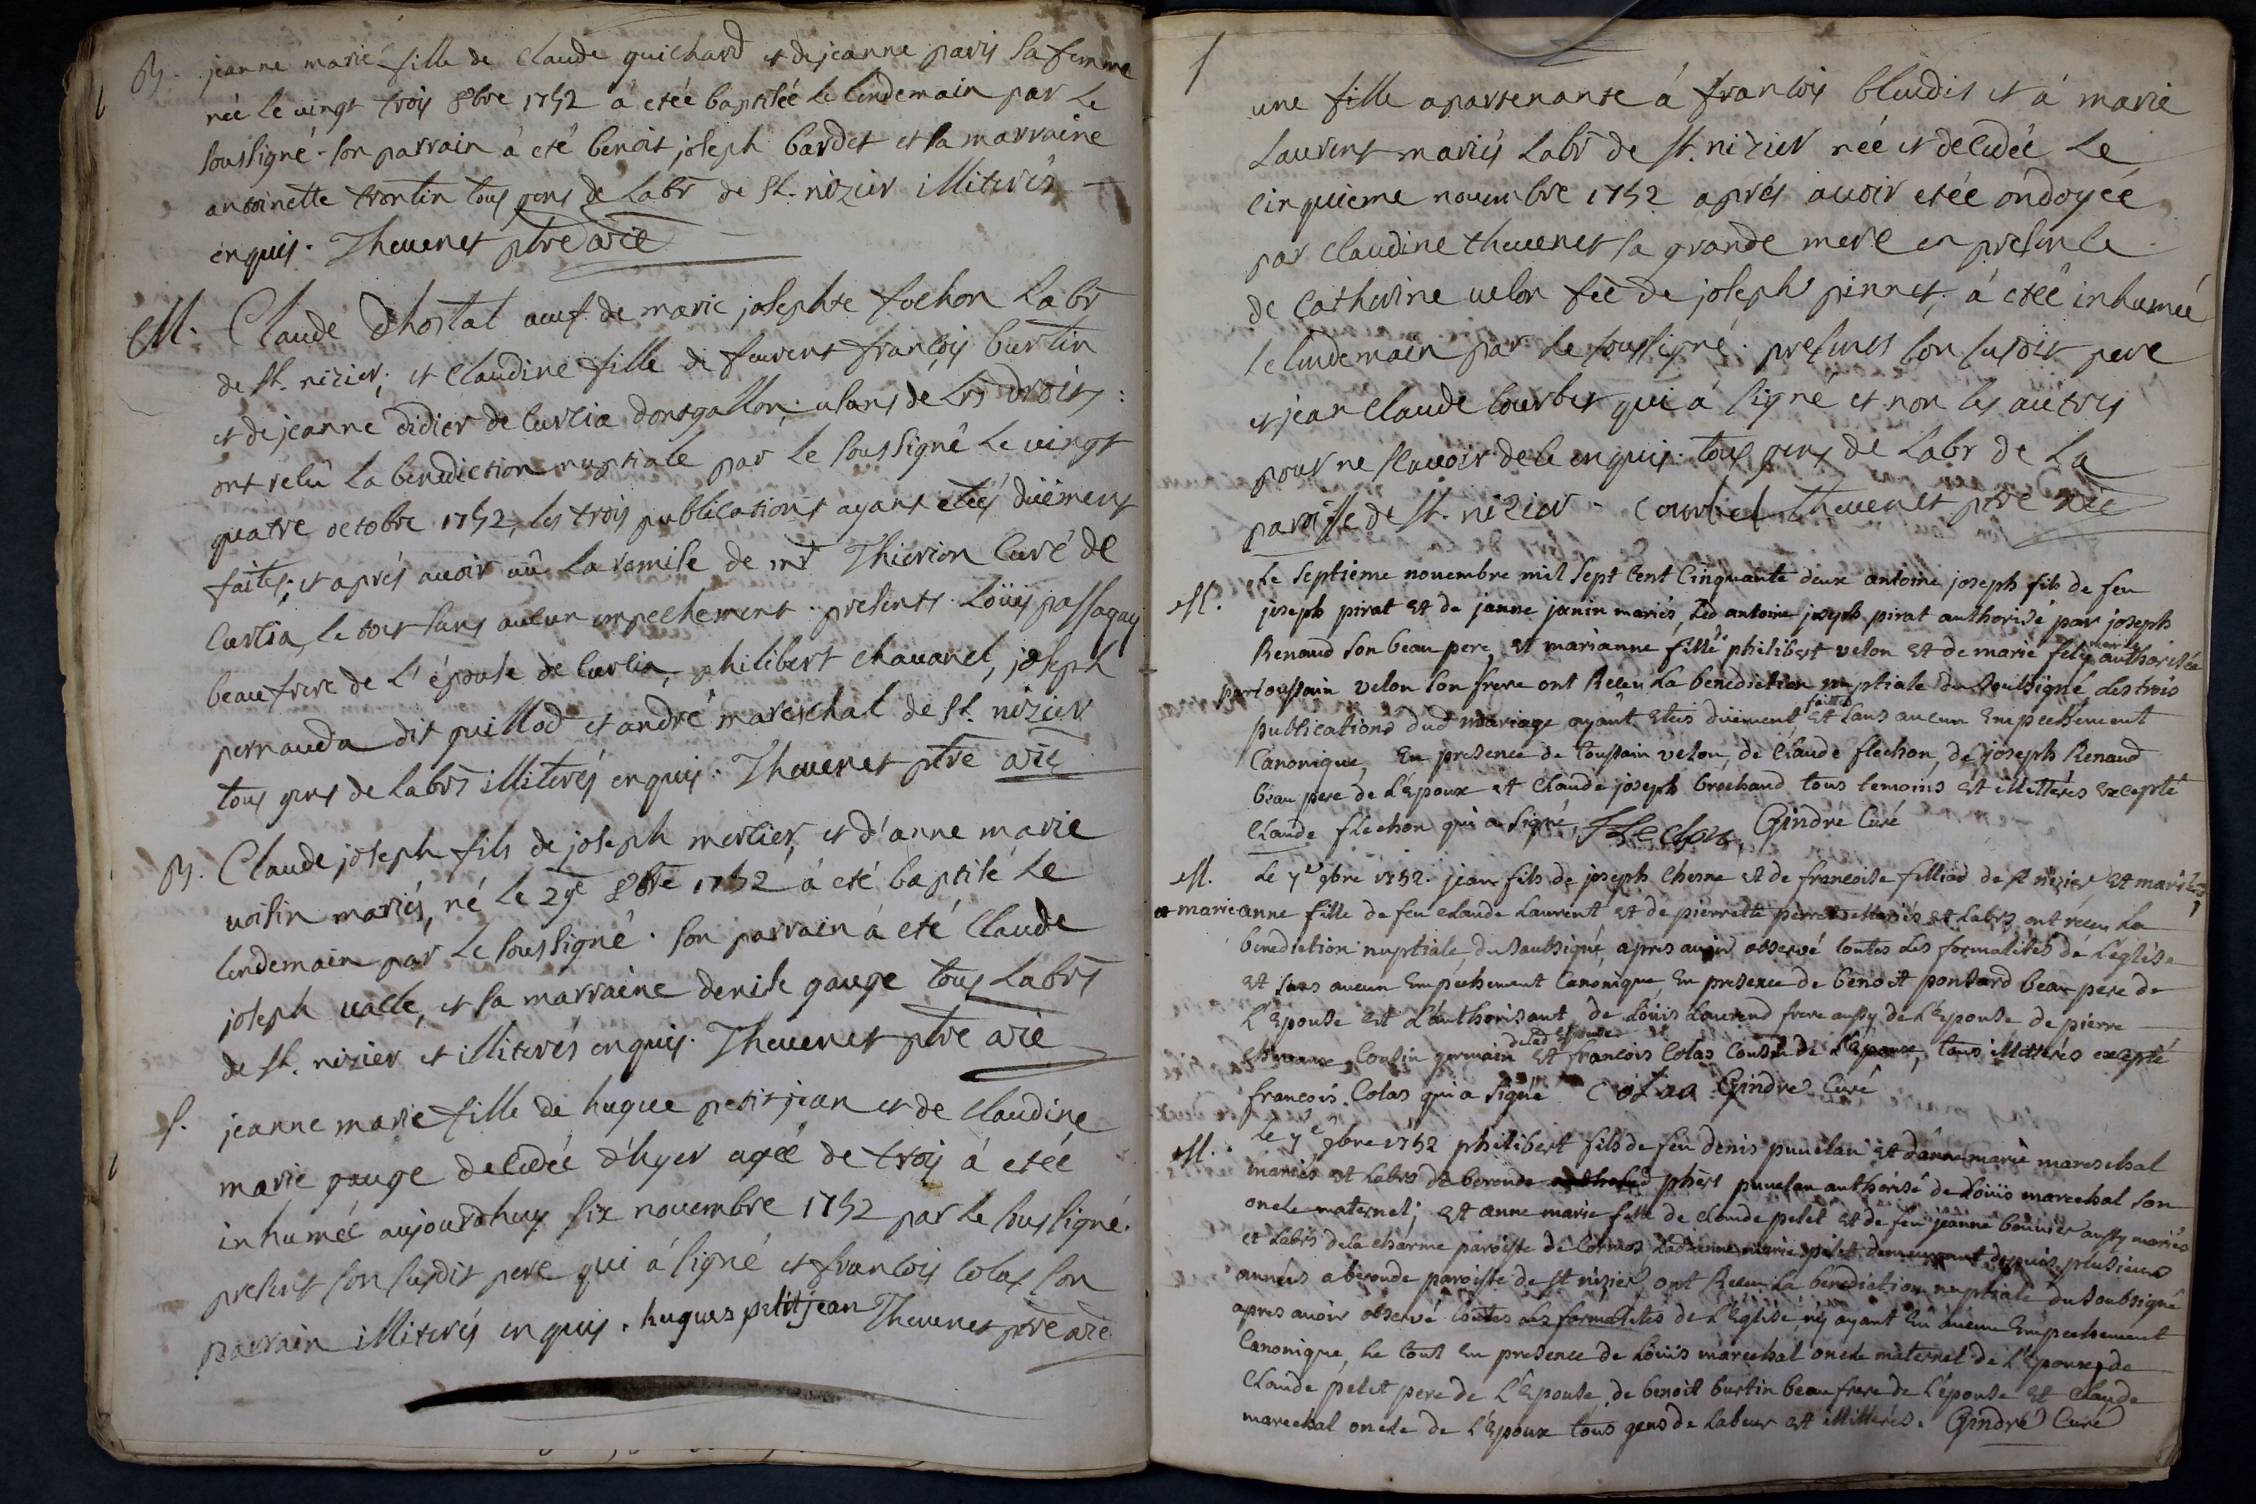 B. jeanne marie fille de Claude guichard et de jeanne paris sa femme
née le vingt trois 8bre 1752 a etée baptisée le lendemain par le
soussigné. son parrain à eté benoit joseph bardet et sa marraine
antoinette trontin tous gens de labr de st. nizier illiterés
enquis. Thevenet ptre vic
M. Claude dhostal veuf de marie josephte fochon labr
de st. nizier; et Claudine fille de françois burtin
et de jeanne didier de Curtia dontgallon; usans de drois:
ont reçû la benediction nuptiale par le soussigné le vingt
quatre octobre 1752, les trois publications ayant etées düement
faites; et aprés avoir eû la remise de mr Thiorion Curé de
Curtia, le tout sans aucun empechement. presents Loüis passaquay
beaufrere de l'épouse de Curtia, philibert Chavanel, joseph
pernauda dit guillod et andré mareschal de st. nizier
tous gens de labr illiterés enquis. Thevenet ptre vic
B. Claude joseph fils de joseph mercier, et d'anne marie
voisin mariés, né le 29e 8bre 1752 à eté baptisé le
lendemain par le soussigné. son parrain à eté Claude
joseph valle, et sa marraine denise gauge tous labrs
de st. nizier et illiterés enquis. Thevenet ptre vic
S. jeanne marie fille de hugue petitjean et de Claudine
marie gauge decedée d'hyer agée de trois à etée
inhumée aujourdhuy six novembre 1752 par le soussigné.
present son susdit pere qui à signé et françois Colas son
parrain illiterés enquis. hugues petitjean Thevenet ptre vic
S une fille apartenante á françois Cludit et á marie
Laurent mariés labr de st. nizier née et decedée le
cinquieme novembre 1752 aprés avoir etée ondoyée
par Claudine thevenet sa grande mere en presence
de Catherine velon fee de joseph pinnet, á etée inhumée
le lendemain par le soussigné. presents son susdit pere
et jean Claude Courbet qui á signé et non les autres
pour ne sçavoir de ce enquis. tous gens de labr de la
paroisse de st. nizier. Courbet Thevenet ptre vic
M. Le septieme novembre mil sept cent cinquante deux antoine joseph fils de feu
joseph pirat et de janne janin mariés, led antoine joseph pirat authorisé par joseph
Renaud son beau pere, et marianne fille philibert velon et de marie fely mariés authorisée
par toussain velon son frere ont Receu la benediction nuptiale du soussigné les trois
publications dud mariage ayant etes düement faittes et sans aucun Empechement
Canonique, En presence de toussain velon, de Claude flechon, de joseph Renaud
beau pere de l'Epoux et Claude joseph brochand tous temoins et illitterés excepté
Claude flechon qui a signé, FLechon, Gindre Curé
M. Le 7e 9bre 1752. jean fils de joseph Chesne et de francoise filliod de st nizier, et mariés,
et marie anne fille de feu claude Laurent et de pierrette perret mariés et labrs ont receu la
benediction nuptiale du soussigné, apres avoir observé toutes les formalités de l'eglise
et sans aucun Empechement Canonique, En presence de benoit ponsard beau pere de
l'Epouse et l'authorisant, de Loüis Laurend frere aussy de l'Epouse de pierre
Cousin germain delad Epouse et francois Colas Cousin de l'Epoux, tous illitterés excepté
francois Colas qui a signé Colas Gindre Curé
M. Le 7e 9bre 1752 philibert fils de feu denis puvelan et d'anne marie mareschal
mariés et labrs de beronde phbert puvelan authorisé de Loüis marechal son
oncle maternel; et anne marie fille de claude petet et de feu jeanne bouvier aussy mariés
et labrs de la charme paroisse de Cormos Lad anne marie petet demeurant depuis plusieurs
années a beronde paroisse de st nizier, ont Receu la benediction nuptiale du soubsigné
apres avoir observé toutes les formalités de l'Eglise n'y ayant Eu aucun Empechement
Canonique, le tout En presence de Loüis marechal oncle maternel de l'Epoux, de
Claude petet pere de l'Epouse, de benoit burtin beau frere de l'épouse et Claude
marechal oncle de l'Epoux tous gens de labeur et illitterés. Gindre Curé